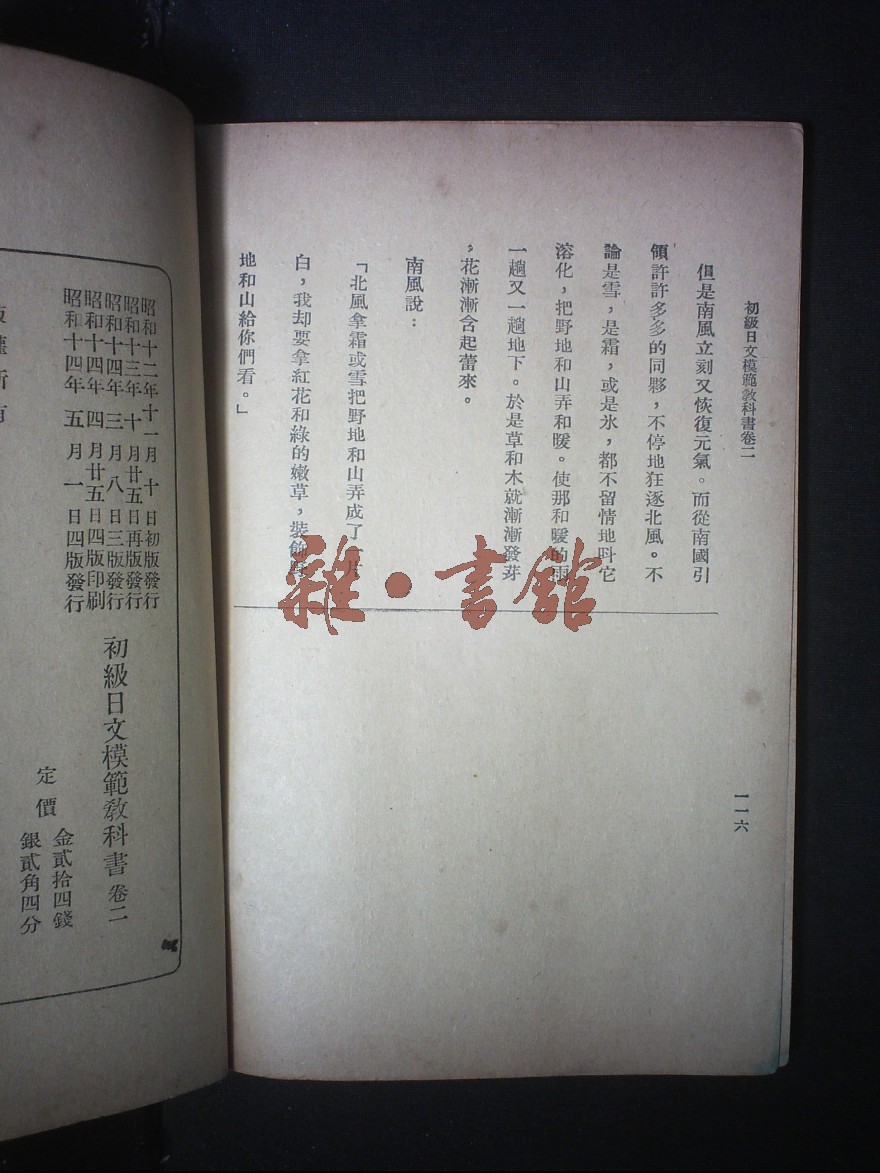 初級日文模範教科書卷二
一一六
但是南風立刻又恢復元氣。而從南國引
領許許多多的同夥，不停地狂逐北風。不
論是雪，是霜，或是氷，都不留情地呌它
溶化，把野地和山弄和暖。使那和暖的雨
一趟又一趟地下。於是草和木就漸漸發芽
，花漸漸含起蕾來。
南風說：
「北風拿霜或雪把野地和山弄成了一片
白，我却要拿紅花和綠的嫩草，裝飾野
地和山給你們看。」
雜·書館
昭和十二年十一月十日初版發行
昭和十三年十月廿五日再版發行
昭和十四年三月八日三版發行
昭和十四年四月廿五日四版印刷
昭和十四年五月一日四版發行
初級日文模範教科書卷二
定價
金貳拾四錢
銀貳角四分